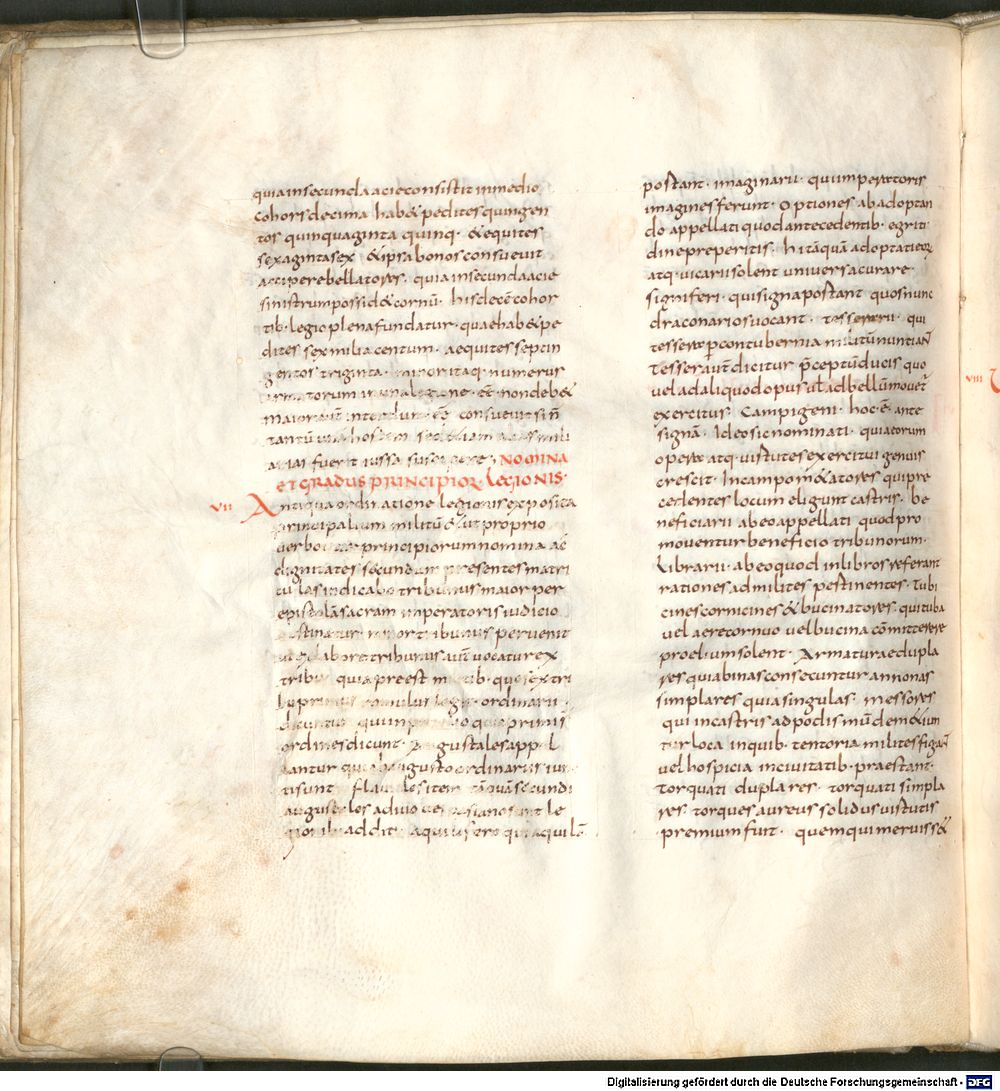 quia in secunda acie consistit in medio
Cohors decima hab& pedites quingen
tos quinquaginta quinq· & equites
sexaginta sex & ipsa bonos consuevit
accipere bellatores· quia in secunda acie
sinistrum possid& cornū· his decē cohor
tib· legio plena fundatur· quae hab& pe
dites sex milia centum· aequites septin
gentos triginta· minor itaq· numerus
armatorum in una legione· non deb&
maior interdum consuevit
tantū una
fuerit iussa suscipere· NOMINA
ET GRADUS PRINCIPIOR LEGIONIS·
VII Antiqua ordinatione legionis exposita
principalium militū & ut proprio
uerbo principiorum nomina ac
dignitates secundum presentes matri
culas indicabo tribunus maior per
epistolā sacram imperatoris iudicio
destinatur· minor tribunus pervenit
labore tribunus aut vocatur ex
tribu quia preest militib· quos ex tri
bu primus romulus legit· ordinarii
dicuntur qui in proelio quia primi
ordines dicunt· Augustales appel
lantur qui ab augusto ordinariis iun
ti sunt· flaviales item tāquā secundi
augustales a divo vespasiano sunt le
gionib· additi· aquiliferi qui aquilā
postant· imaginarii· qui imperatoris
imagines ferunt· Optiones ab adoptan
do appellati quod antecedentib· egrit
dine preperitis· hi tāquā adoptati eor
atq· vicarii solent universa curare·
signiferi· qui signa postant quos nunc
draconarios vocant· tesserarii· qui
tesserā p contubernia militū nuntiant
Tessera aut dicitur pceptū ducis quo
vel ad aliquod opus ut ad bellū movet
exercitus Campigeni· hoc ē ante
signā· Ideo sic nominati· quia eorum
opere atq· vistute exercitui genus
crescit· In campo m&atores qui pre
cedentes locum eligunt castris· be
neficiarii ab eo appellati quod pro
moventur beneficio tribunorum·
Librarii· ab eo quod in libros referant
rationes ad milites pestinentes· tubi
cines cornicines & bucinatores· qui tuba
vel aere cornuo vel bucina cōmittere
proelium solent· Armaturae dupla
res qui abinas consecuntur annonas
simplares quia singulas· messores
qui in castris ad podismū dem&iun
tur loca in quib· tentoria milites figant
vel hospicia in civitatib· praestant·
Torquati duplares· torquati simpla
res· torques aureus solidus vistutis
premium fuit· quem qui meruiss&
VIII
Digitalisierung gefördert durch die Deutsche Forschungsgemeinschaft · DFG